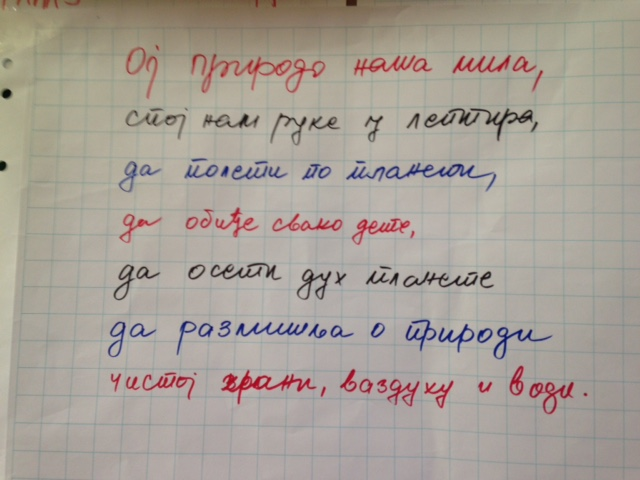 Ој природо наша мила,
спој нам руке у лептира,
да полети по планети,
да обиђе свако дете,
да осети дух планете
да размишља о природи
чистој храни, ваздуху и води.